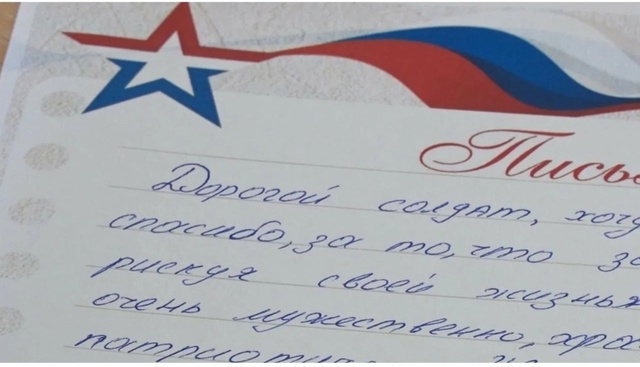 Пись
Дорогой солдат, хочу
спасибо, за то, что за
рискуя своей жизнью
очень мужественно, хра
патриотич